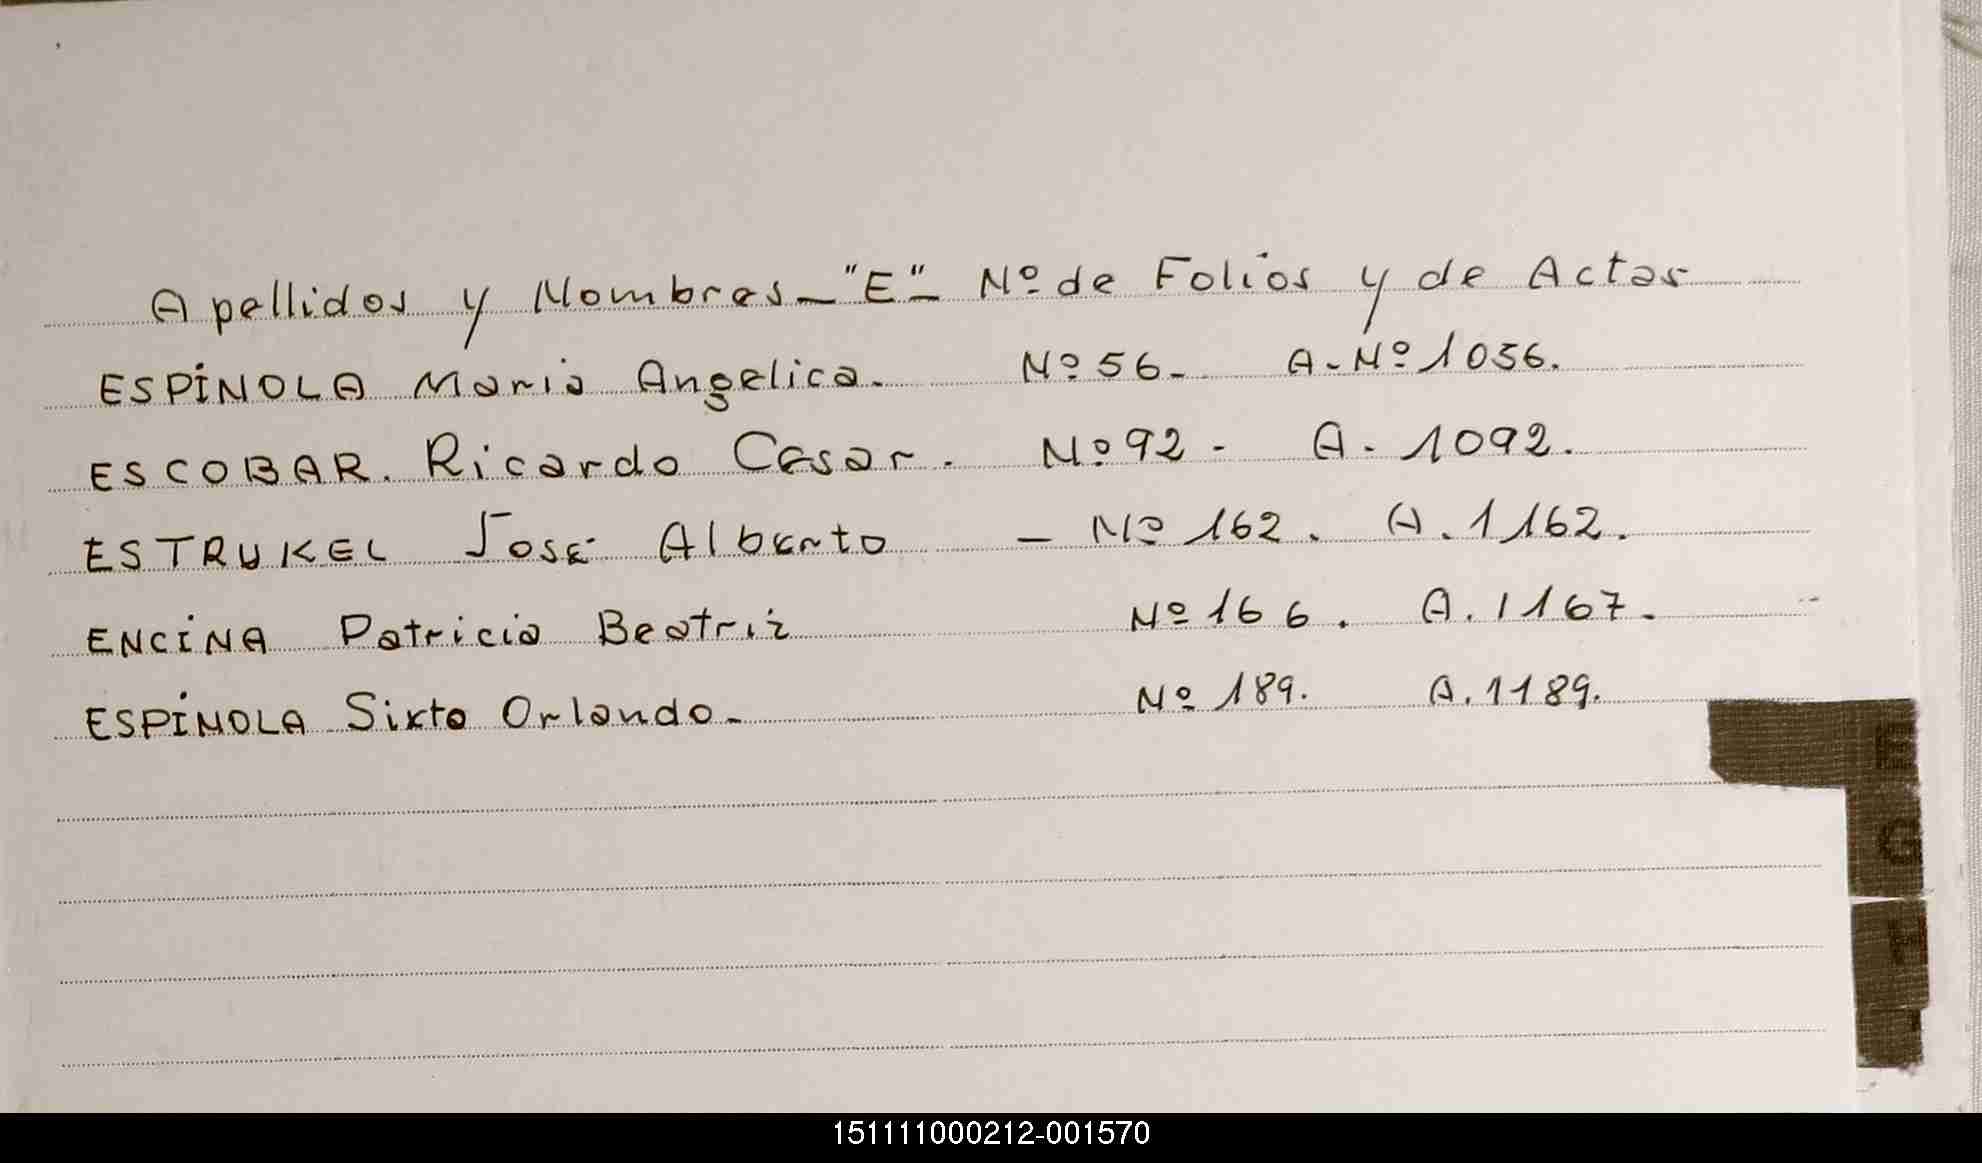 Apellidos y Nombres - "E" - Nº de Folios y de Actas
ESPÍNOLA Maria Angelica. Nº 56. A. Nº 1056.
ESCOBAR. Ricardo Cesar. Nº 92 - A. 1092.
ESTRUKEL José Alberto - Nº 162. A. 1162.
ENCINA Patricia Beatriz Nº 166. A. 1167.
ESPÍNOLA Sixto Orlando. Nº 189. A. 1189.
E
G
151111000212-001570